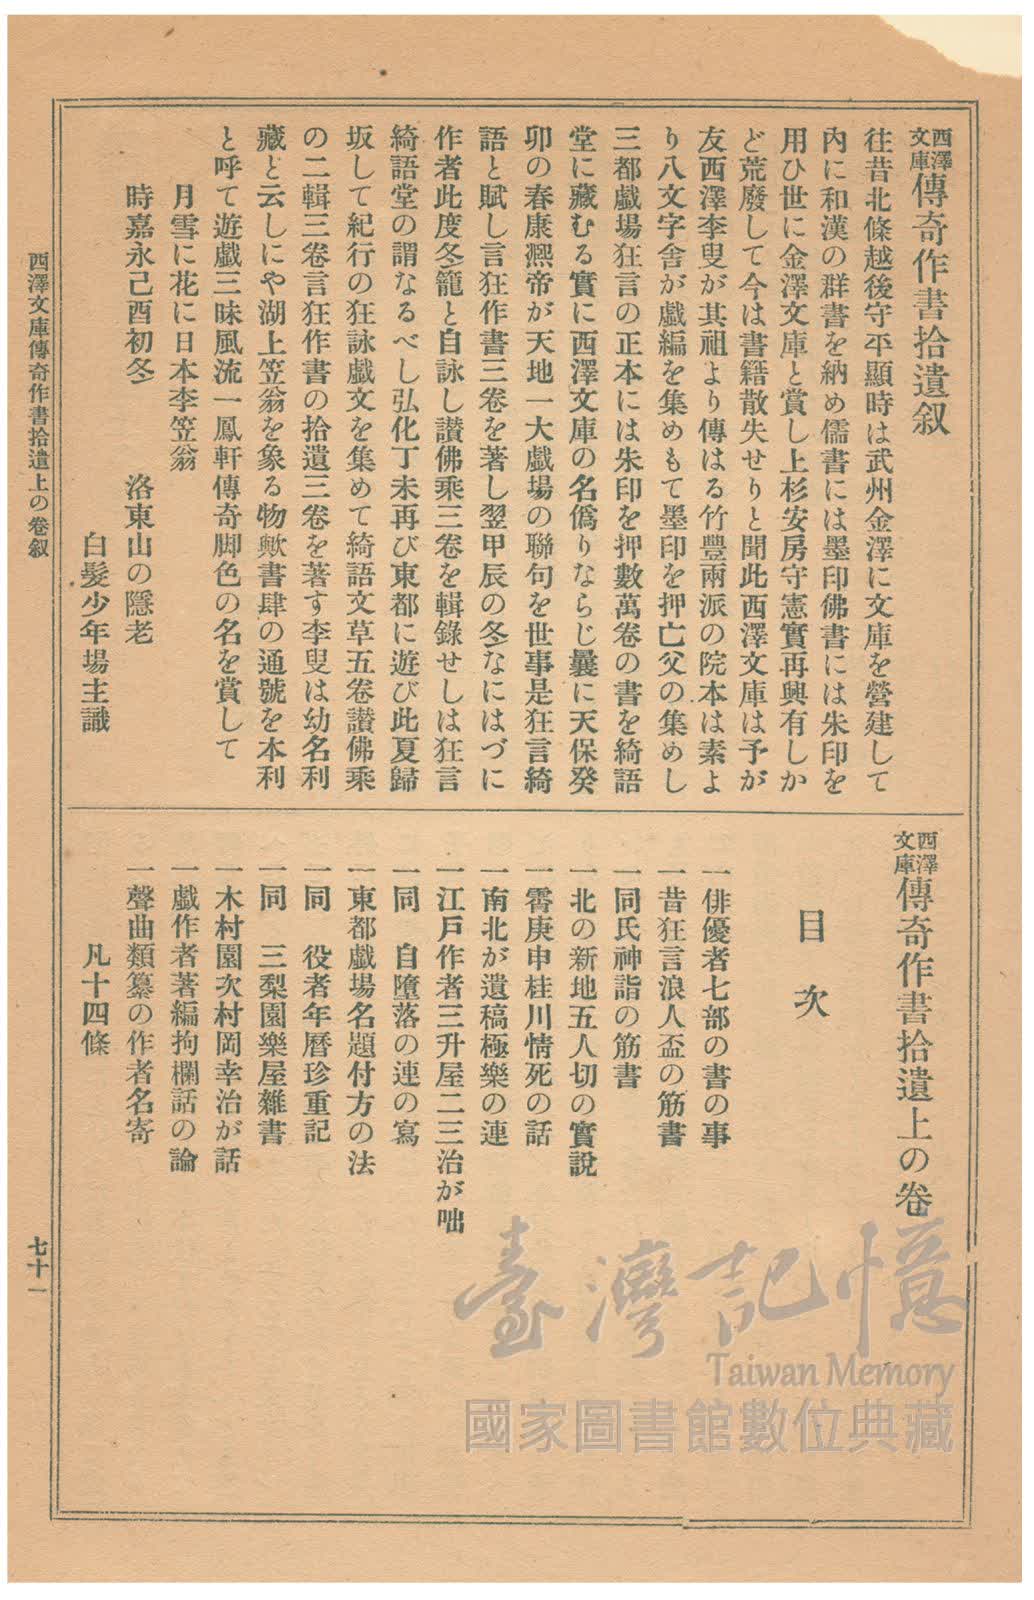 西澤文庫傳奇作書拾遺叙
往昔北條越後守平顯時は武州金澤に文庫を營建して
內に和漢の群書を納め儒書には墨印佛書には朱印を
用ひ世に金澤文庫と賞し上杉安房守憲實再興有しか
ど荒廢して今は書籍散失せりと聞此西澤文庫は予が
友西澤李叟が其祖より傳はる竹豐兩派の院本は素よ
り八文字舍が戲編を集めもて墨印を押亡父の集めし
三都戲場狂言の正本には朱印を押數萬卷の書を綺語
堂に藏むる實に西澤文庫の名僞りならじ曩に天保癸
卯の春康熙帝が天地一大戲場の聯句を世事是狂言綺
語と賦し言狂作書三卷を著し翌甲辰の冬なにはづに
作者此度冬籠と自詠し讃佛乘三卷を輯錄せしは狂言
綺語堂の謂なるべし弘化丁未再び東都に遊び此夏歸
坂して紀行の狂詠戲文を集めて綺語文草五卷讃佛乘
の二輯三卷言狂作書の拾遺三卷を著す李叟は幼名利
藏と云しにや湖上笠翁を象る物歟書肆の通號を本利
と呼て遊戲三昧風流一鳳軒傳奇脚色の名を賞して
月雪に花に日本李笠翁
時嘉永己酉初冬　洛東山の隱老
白髮少年場主識
西澤文庫傳奇作書拾遺上の卷
目次
一俳優者七部の書の事
一昔狂言浪人盃の筋書
一同氏神詣の筋書
一北の新地五人切の實說
一霄庚申桂川情死の話
一南北が遺稿極樂の連
一江戶作者三升屋二三治が咄
一同　自墮落の連の寫
一東都戲場名題付方の法
一同　役者年曆珍重記
一同　三梨園樂屋雜書
一木村園次村岡幸治が話
一戲作者著編拘欄話の論
一聲曲類纂の作者名寄
凡十四條
西澤文庫傳奇作書拾遺上の卷叙
七十一
臺灣記憶
Taiwan Memory
國家圖書館數位典藏